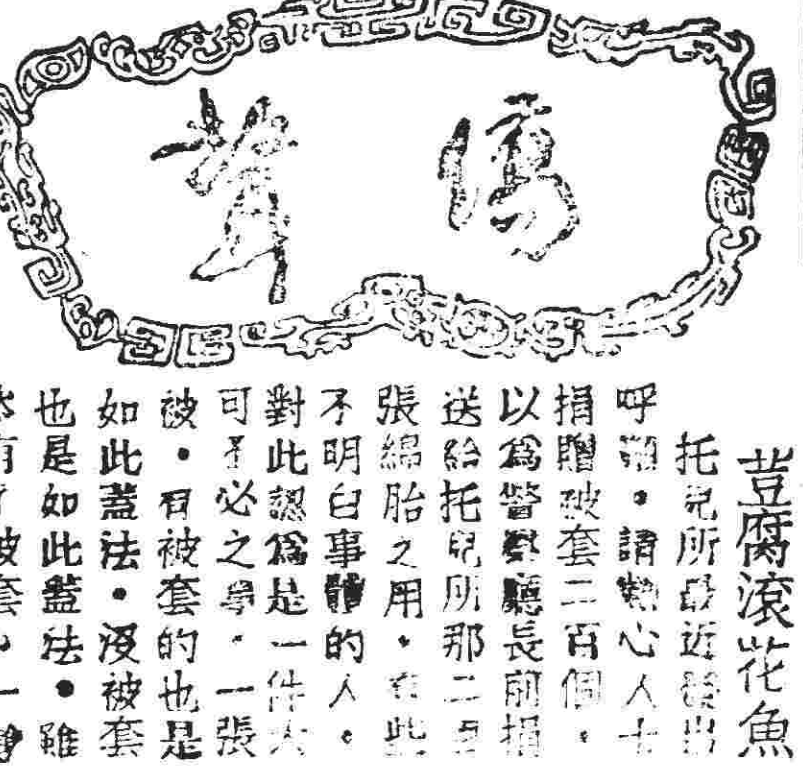 聲
荳腐滾花魚
托兒所最近發出
呼籲。請熱心人士
捐贈被套二百個。
以爲警察廳長前捐
送給托兒所那二百
張綿胎之用。在此
不明白事體的人。
對此認爲是一件大
可不必之舉。一張
被。有被套的也是
如此蓋法。沒被套
也是如此蓋法。雖
有被套。一